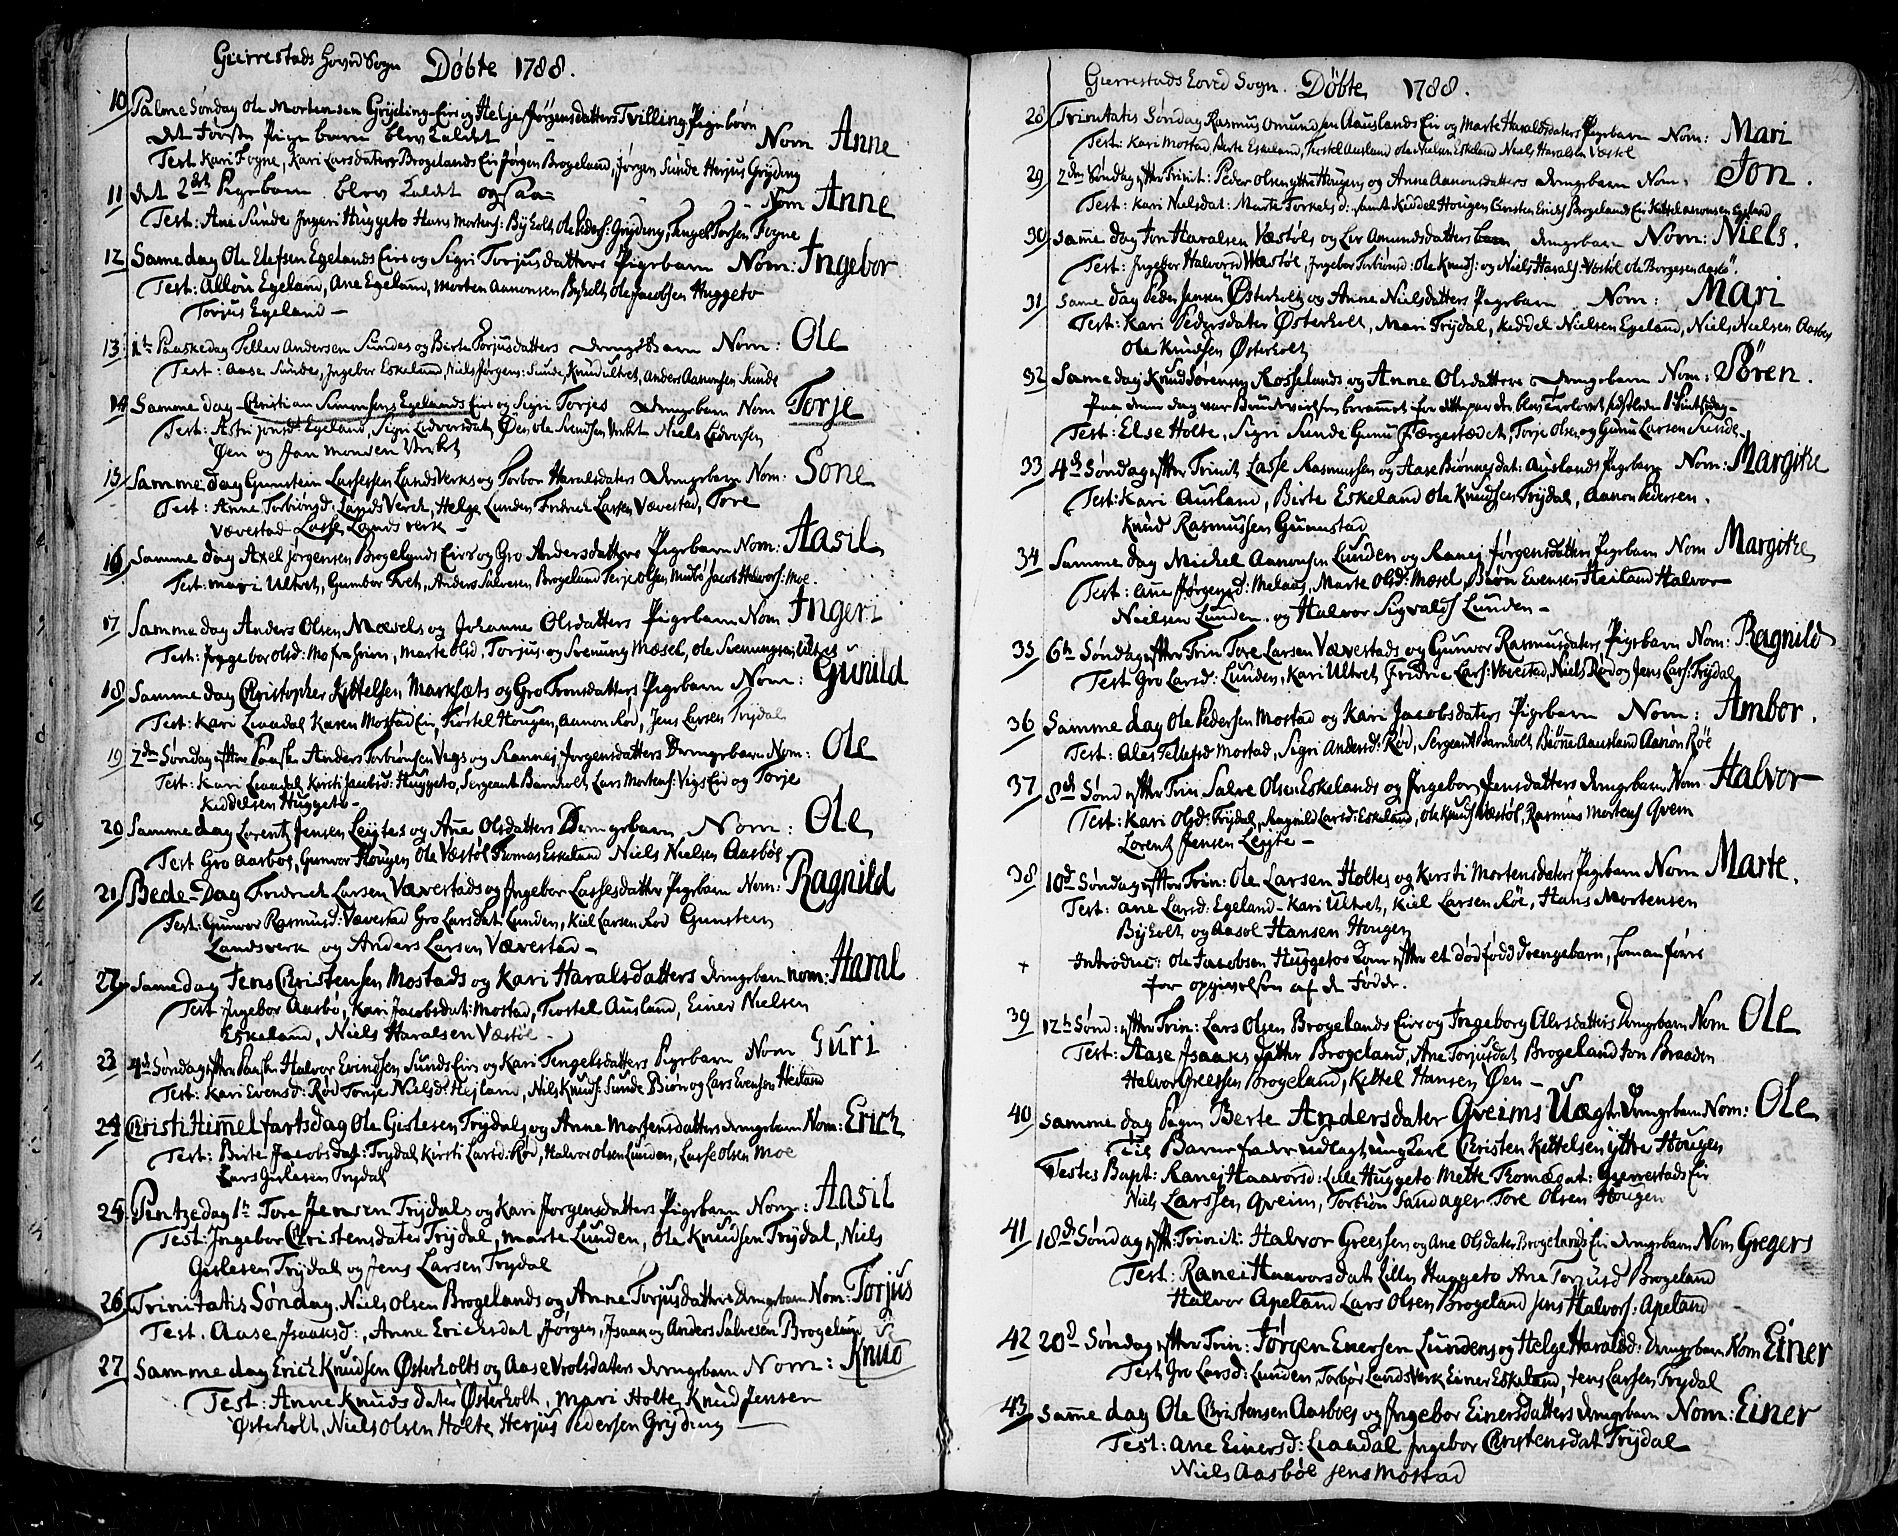 Gierrestads Hoved Sogn Døbte 1788.
10 Palme Søndag Ole Mortensen Gryting Eir og Helje Jørgensdatters Tvilling Pigebørn
det første Pige barn blev kaldet Nom Anne
Test Kari Fogne, Kari Larsdatter Brogelands Eir Jørgen Brogeland, Jørgen Sunde Herjus Gryting
11 det 2det Pigebarn blev kaldt ogsaa Nom Anne
Test: Ane Sunde Ingeri Huggeto Hans Mortens: Byholt, Ole Peders: Gryting, Tengel Torsen Fogne
12 Same dag Ole Olefsen Egelands Eir og Sigri Torjusdatters Pigebarn Nom: Ingebor
Test: Allou Egeland, Ane Egeland, Morten Aanonsen Byholt, Ole Jacobsen Huggeto
Torjus Egeland —
13 1te Paaskedag Tellev Andersen Sundes og Birte Torjusdatters drengebarn Nom: Ole
Test: Aase Sunde, Ingebor Eskeland, Niels Jørgens: Sunde, Knud Ultvet, Anders Aanonsen Sunde
14 Samme dag Christian Simonsen Egelands Eir og Sigri Torjes drengebarn Nom Torje
Test: Astri Jonsd: Egeland, Sigri Ledvorsdat, Øen, Ole Svendsen Verket Niels Ledvorsen
Øen og Jan monden Verket
15 Samme dag Gunstein Lassesen Landsverks og Torbor Haralsdaters drengebarn Nom: Sone
Test: Anne Torbiønsd: Lands Verck, Helge Lunden Fredrich Larsen Vævestad, Tore
Vævestad Lasse Landsverk —
16 Samme dag Axel Jørgensen Brogelands Eir og Gro Andersdatters Pigebarn Nom: Aasil
Test: mari Ultvet, Gumbor Tvet, Anders Salvesen Brogeland Terje Olsen Jacob Halvors: Moe.
17 Samme dag Anders Olsen Mæsels og Johanne Olsdatters Pigebarn Nom Ingeri
Test: Inggebor Olsd: Mo, Marte Olsd, Torjus og Svenung Mæsel, Ole Svenungsen
18 Samme dag Christopher Kittelsen Marksæts og Gro Tronsdatters Pigebarn Nom: Gunild
Test: Kari Liaadal Karen Mostad Eir, Tiøstel Hougen, Aanon Rød, Jens Larsen Trydal
19 2den Søndag efter Paaske Anders Torbiønsen Vegs og Rannei Jørgensdatters Drengebarn Nom: Ole
Test: Kari Liaadal, Kirsti Jacobsd: Huggeto, Sergeant Barnholt Lars Mortens: Vigs Eir og Torje
Keddelsen Huggeto —
20 Samme dag Lorentz Jensen Leytes og Ane Olsdatters Drengebarn Nom: Ole
Test Gro Aasbøe, Gunvor Hougen Ole Væstøl Tomas Eskeland Niels Nielsen Aasbøe
21 Bede-Dag Fridrich Larsen Vævestads og Ingebor Lassesdatter Pigebarn Nom: Ragnild
Test: Gunvor Rasmusd: Vævestad Gro Larsdat: Lunden, Kiel Larsen Rød Gunsteen
Landsverk og Anders Larsen Vævestad —
22 Same dag Jens Christensen Mostads og Kari Haralsdatters drengebarn nom: Haral
Test Ingebor Aasbø, Kari Jacobsdat: Mostad, Tiostel Ausland, Einer Nielsen
Eskeland, Niels Haralsen Væstøl —
23 4de Søndag efter Paaske Halvor Evindsen Sunds Eir og Kari Tengelsdatters Pigebarn Nom Guri
Test: Kari Evensd: Rød Tonje Nielsd: Hejland, Nils Knuds: Sunde Biøn og Lars Evensen Heiland
24 Christi Himmelfartsdag Ole Gislesen Trydals og Anne Mortensdatters drengebarn Nom: Erich
Test: Birte Jacobsdat: Trydal Kirsti Larsd: Rød, Halvor Olsen Lunden, Lasse Olsen Moe
Lars Gislesen Trydal
25 Pintzedag 1te Tore Jensen Trydals og Kari Jørgensdatters Pigebarn Nom: Aasil
Test: Ingebor Christensdater Trydal, Marte Lunden, Ole Knudsen Trydal, Niels
Gislesen Trydal og Jens Larsen Trydal
26 Trinitatis Søndag, Niels Olsen Brogelands og Anne Torjusdatters drengebarn Nom: Torjus
Test. Aase Isaaksd:, Anne Erichsdat Jørgen, Isaak og Anders Salvesen Brogeland
27 Samme dag Erich Knudsen Østerholts og Aase Vrolsdaters drengebarn Nom: Knud
Test: Anne Knudsdater Østerholt, Mari Holte Knud Jensen
Østerholt, Niels Olsen Holte Herjus Pedersen Gryting —
Gierrestads Hoved Sogn. Døbte 1788.
28 Trinitatis Søndag Rasmus Omundsen Aauslands Eir og Marte Haraldsdaters Pigebarn Nom: Mari
Test: Kari Mostad Berte Eskeland, Tiostel Ausland Ole Nielsen Eskeland Niels Haralsen Væstøl
29 2den Søndag efter Trinit: Peder Olsen yttre Hougens og Anne Aanonsdatters drengebarn Nom: Jon.
Test: Kari Nielsdat: Marte Torkelsd: samt Keddel Hougen Carsten Erichs Brogelands Eir Kittel Aanonsen Egeland
30 Same dag Jon Haralsen Væstøls og Liv Amundsdatters drengebarn Nom: Niels.
Test: Ingebor Halvorsd Væstøl, Ingebor Torbiønsd: Ole Knuds: og Niels Harals: Væstøl Ole Borgesen Aasbø.
31 Same dag Peder Jensen Østerholts og Anne Nielsdatters Pigebarn Nom: Mari
Test: Kari Pedersdater Østerholt, Mari Trydal, Keddel Nielsen Egeland, Niels Nielsen Aasbø
Ole Knudsen Østerholt
32 Same dag Knud Sørensen Rosselands og Anne Olsdatters drengebarn Nom: Søren.
Paa denne dag var Brudevielsen berammet for dette par der blev Trolovet sidstleden 1te Pintzdag —
Test: Else Holte, Sigri Sunde Gunu Færgestædet, Torje Olsen og Gunu Larsen Sunde.
33 4de Søndag efter Trinit Lasse Rasmussen og Aase Biønnesdat: Auslands Pigebarn Nom: Margitte
Test: Kari Ausland, Birte Eskeland Ole Knudsen Trydal, Aanon Pedersen.
Knud Rasmussen Gumstad
34 Samme dag Michel Aanonsen Lunden og Ranei Jørgensdatters Pigebarn Nom Margitte
Test: Ane Jørgensd: Melaas, Marte Olsd: Mæsel, Biøn Evensen Heiland Halvor
Nielsen Lunden. og Halvor Sigvalds Lunden —
35 6te Søndag efter Trin Tore Larsen Vævestads og Gunvor Rasmusdaters Pigebarn Nom: Ragnild
Test Gro Larsd: Lunden, Kari Ultvet, Fridric Lars: Vævestad, Niels Rød og Jens Lars: Trydal
36 Samme dag Ole Pedersen Mostad og Kari Jacobsdaters Pigebarn Nom: Ambor.
Test: Ales Tellefsd Mostad, Sigri Andersd: Rød, Sergeant Barnholt Biønne Aausland Aanon Røe
37 8de Sønd efter Trin Salve Olsen Eskelands og Ingebor Jensdatters drengebarn Nom: Halvor
Test: Kari Olsd: Trydal, Ragnild Larsd: Eskeland, Ole Knuds Væstøl, Rasmus Mortens Qvem
Lorentz Jensen Leyte —
38 10de Søndag efter Trin: Ole Larsen Holtes og Kirsti Mortensdaters Pigebarn Nom Marte.
Test: ane Larsd: Egeland — Kari Ultvet, Kiel Larsen Røe, Hans Mortensen
Byholt og Aasol Hansen Hougen
+ Introduc: Ole Jacobsen Huggetos Kone efter et dødfødd drengebarn, som anføres
for opgivelsen af de Fødde.
39 12te Sønd: efter Trin: Lars Olsen Brogelands Eir og Ingeborg Olersdatters Drengebarn Nom Ole
Test: Aase Isaaksdatter Brogeland, Ane Torjusdat Brogeland Jon Braaden
Halvor Greessen Brogeland, Kittel Hansen Øen —
40 Samme dag Pigen Berte Andersdater Qveims Uægte Drengebarn Nom: Ole
Til Barnefader udlagt ung Karl Christen Kittelsen ytre Hougen
Testes Bapt: Ranei Haavorsd: Lille Huggeto Mette Thomædat: Gierrestads Eir
Niels Larssen Qveim, Torbiøn Sandager Tore Olsen Hougen
41 18de Søndag eft: Trinit: Halvor Greessen og Ane Olsdater Brogelands Eir drengebarn Nom Gregers
Test: Ranei Haavorsdat Lille Huggeto Ane Torjusd Brogeland
Halvor Apeland Lars Olsen Brogeland Jens Halvors: Apeland
42 20de Søndag efter Trin: Jørgen Enersen Lundens og Helge Haraldsd: Drengebarn Nom Einer
Test Gro Larsd: Lunden, Torbor Landsverk Einer Eskeland, Jens Larsen Trydal
43 Same dag Ole Christensen Aasbøes og Ingebor Einersdatters drengebarn Nom: Einer
Test: Ane Einersd: Liaadal Ingebor Christensdat Trydal
Niels Aasbøe Jens Mostad